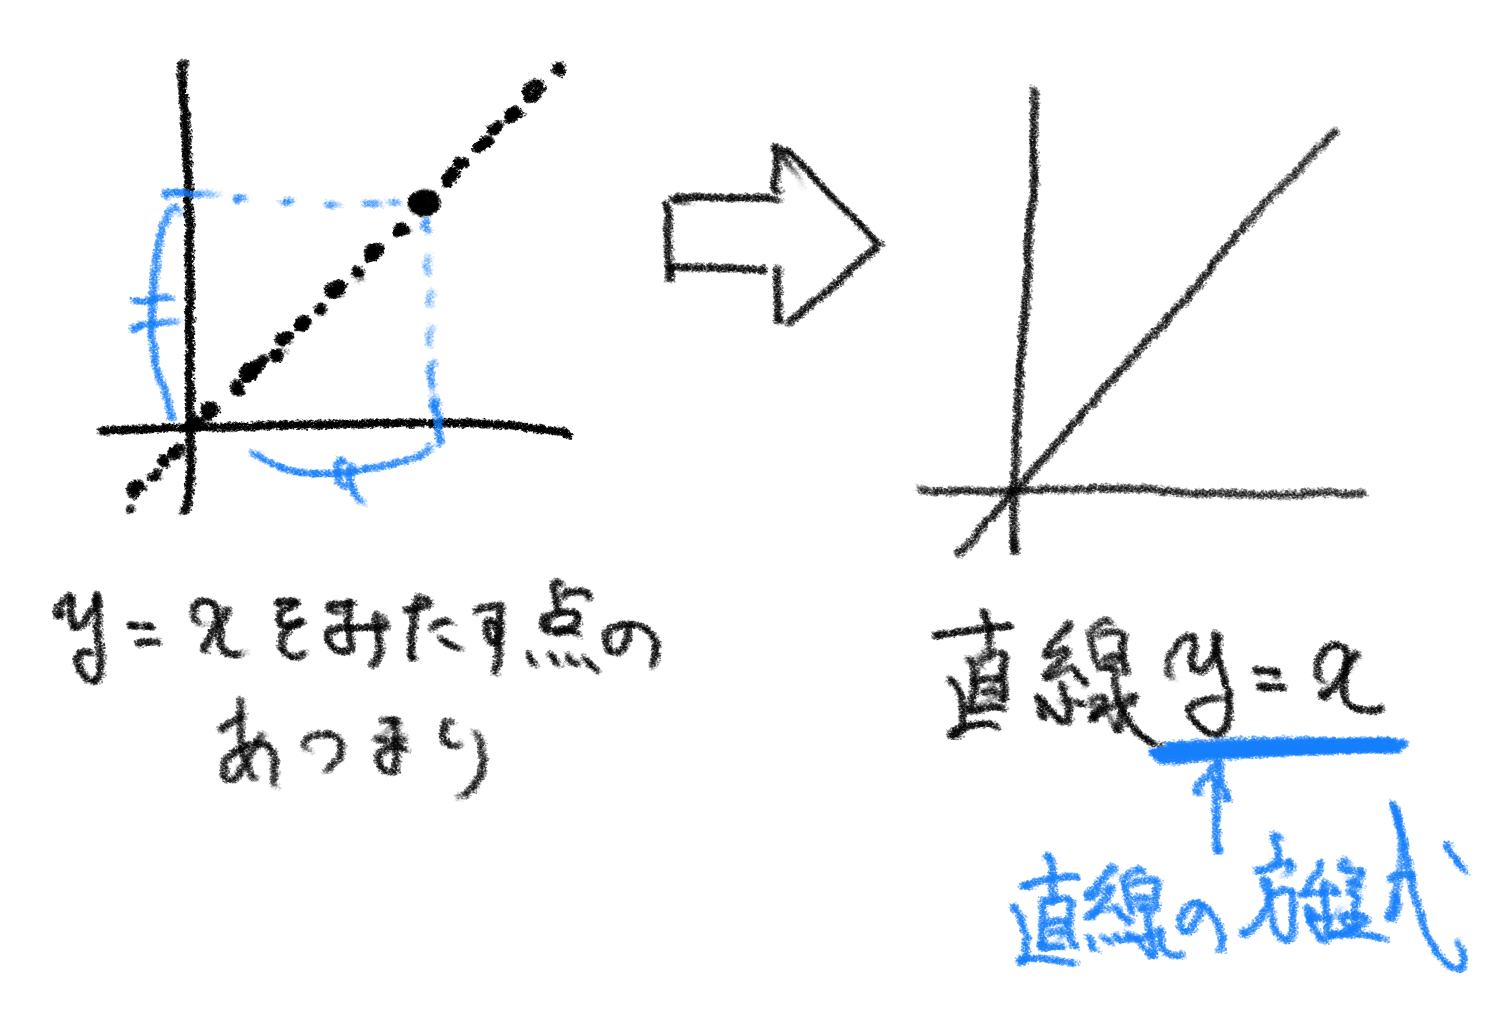 y=xをみたす点の
あつまり
直線y=x
直線の方程式